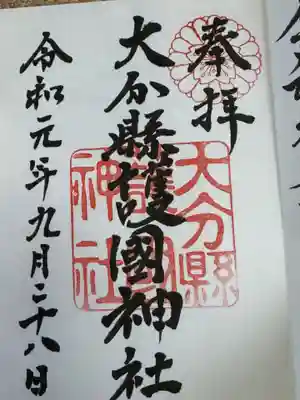 奉拝
大分縣護國神社
大分縣
護國
神社
令和元年九月二十八日